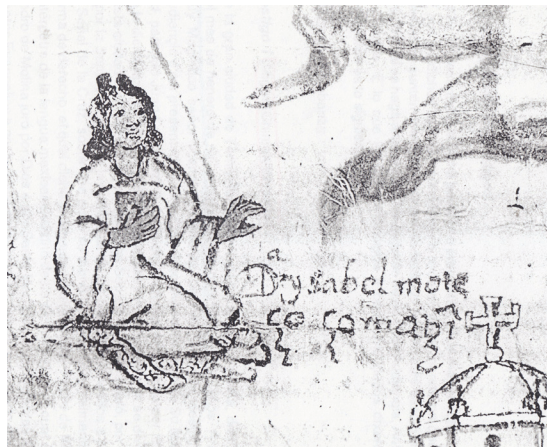 Dᵃ ysabel mote
ço çomazĩ